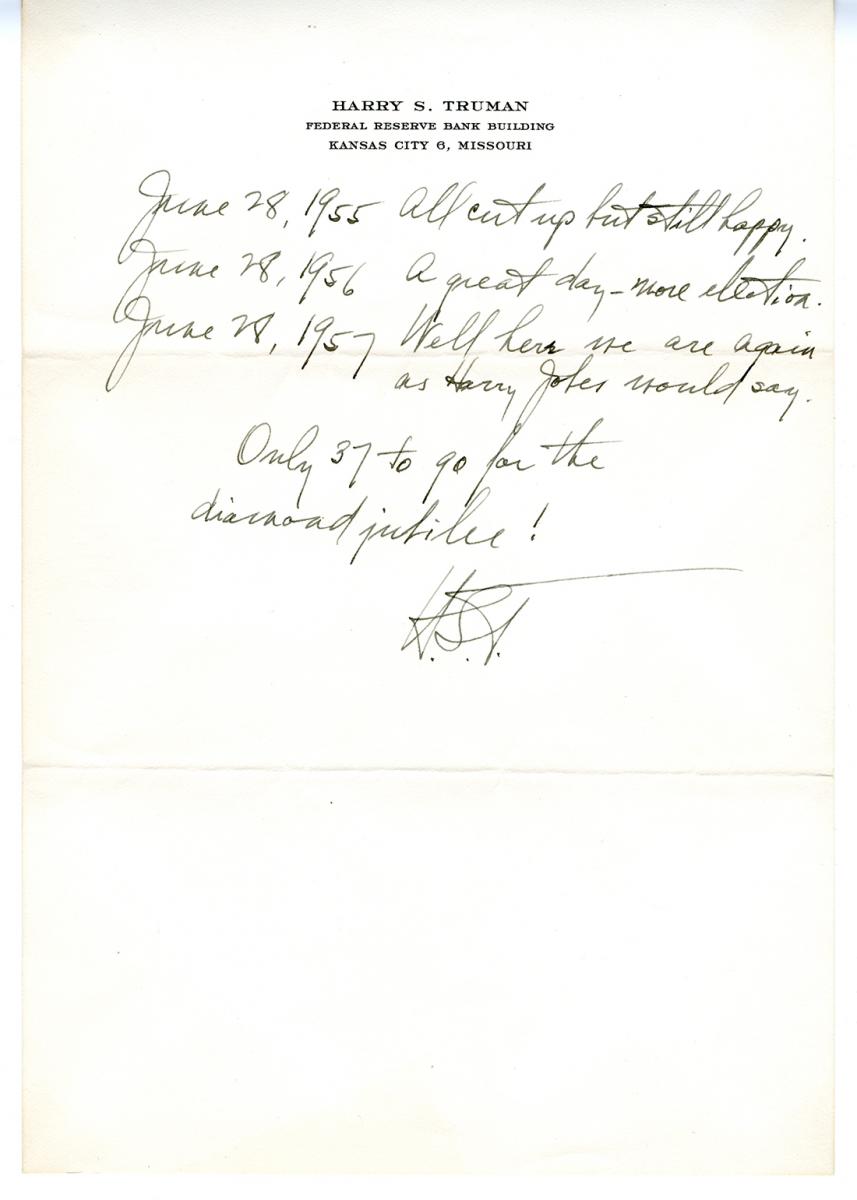 HARRY S. TRUMAN
FEDERAL RESERVE BANK BUILDING
KANSAS CITY 6, MISSOURI
June 28, 1955 All cut up but still happy.
June 28, 1956 A great day - more election.
June 28, 1957 Well here we are again
as Harry Jobes would say.
Only 37 to go for the
diamond jubilee!
H.S.T.